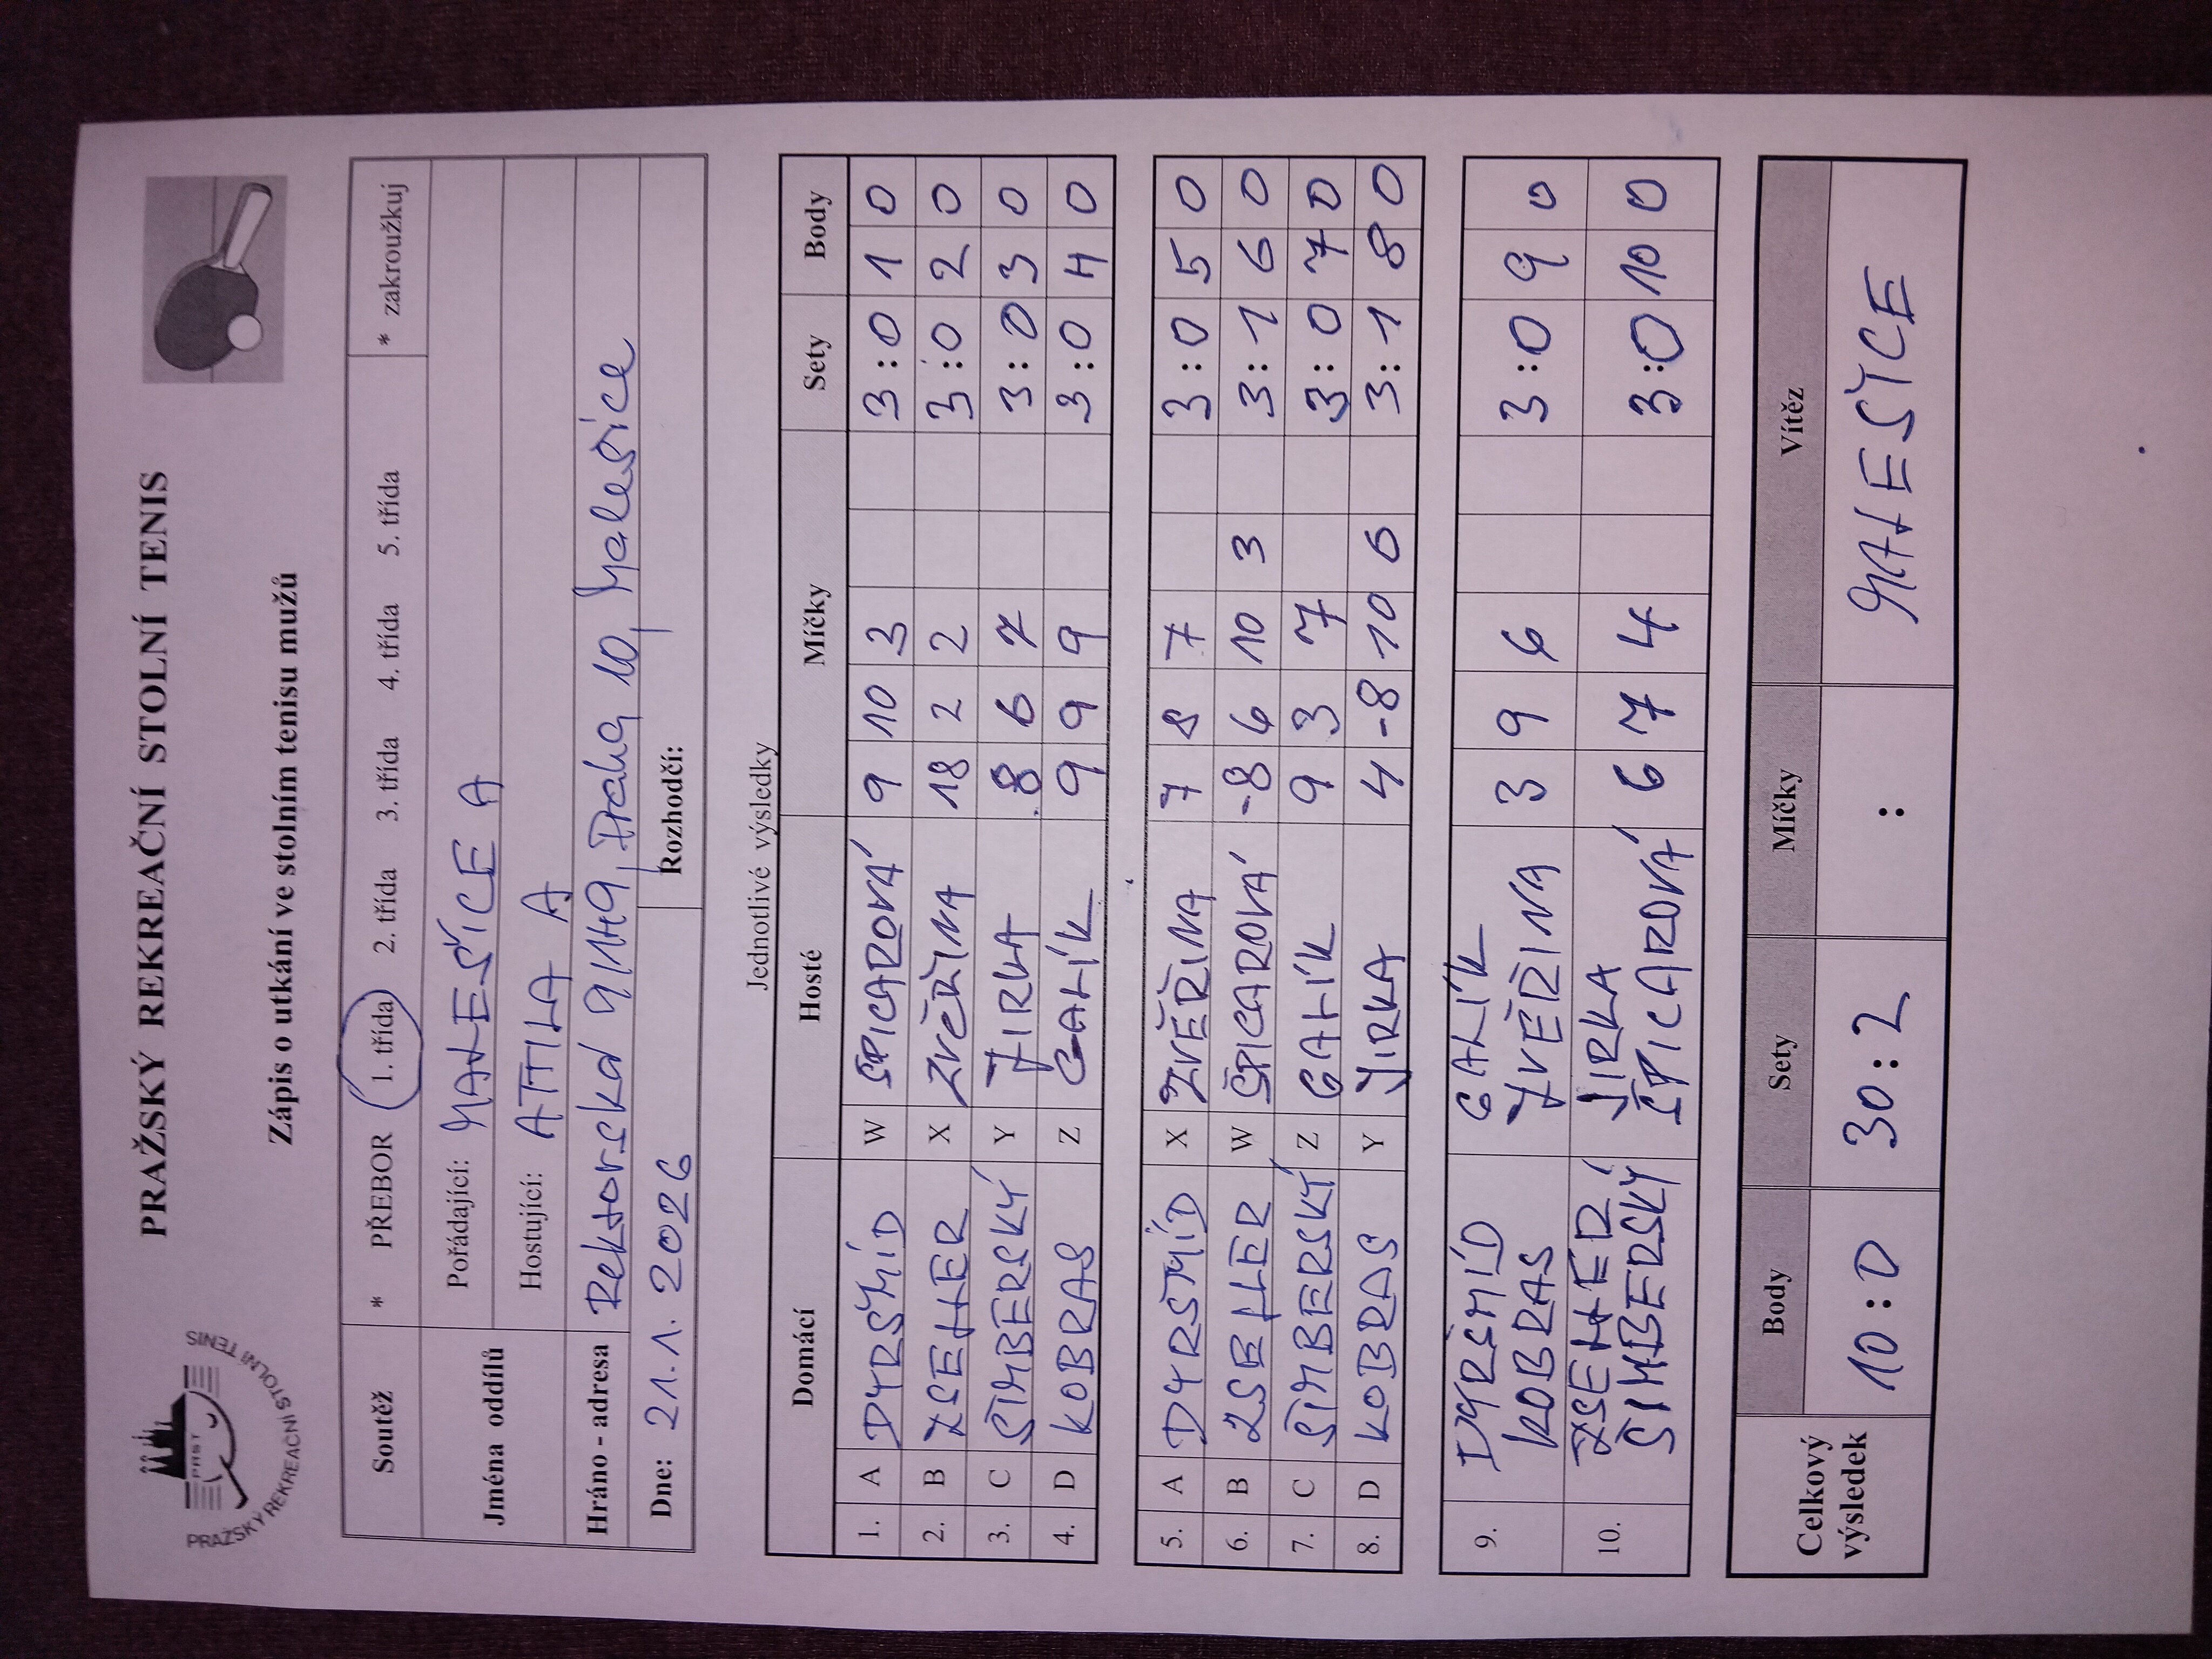 PRAŽSKÝ REKREAČNÍ STOLNÍ TENIS
PRST
PRAŽSKÝ REKREAČNÍ STOLNÍ TENIS
Zápis o utkání ve stolním tenisu mužů
Soutěž * PŘEBOR 1. třída 2. třída 3. třída 4. třída 5. třída * zakroužkuj
Jména oddílů Pořádající: MALEŠICE A
Hostující: ATTILA A
Hráno - adresa Rektorská 9/149, Praha 10, Malešice
Dne: 21.1. 2026 Rozhodčí:
Jednotlivé výsledky
Domácí Hosté Míčky Sety Body
1. A DYRŠMÍD W ŠPICAROVÁ 9 10 3 3:0 1 0
2. B ZSELLER X ZVĚŘINA 18 2 2 3:0 2 0
3. C ŠIMBERSKÝ Y JIRKA 8 6 7 3:0 3 0
4. D KOBRAS Z GALÍK 9 9 9 3:0 4 0
5. A DYRŠMÍD X ZVĚŘINA 7 8 7 3:0 5 0
6. B ZSELLER W ŠPICAROVÁ -8 6 10 3 3:1 6 0
7. C ŠIMBERSKÝ Z GALÍK 9 3 7 3:0 7 0
8. D KOBRAS Y JIRKA 4 -8 10 6 3:1 8 0
9. DYRŠMÍD GALÍK 3 9 6 3:0 9 0
KOBRAS ZVĚŘINA
10. ZSELLER JIRKA 6 7 4 3:0 10 0
ŠIMBERSKÝ ŠPICAROVÁ
Celkový výsledek Body Sety Míčky Vítěz
10:0 30:2 : MALEŠICE